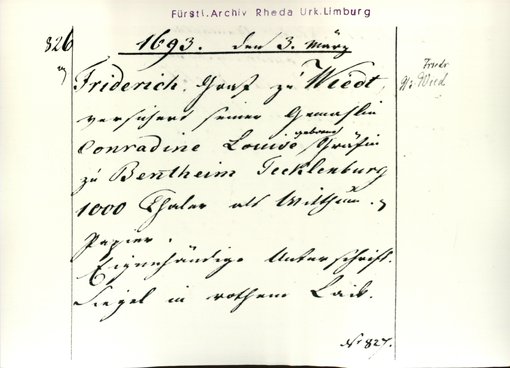 Fürstl. Archiv Rheda Urk. Limburg
826
1693. den 3. März
Friderich, Graf zu Wiedt,
versichert seiner Gemahlin
Conradine Louise geborne Gräfin
zu Bentheim Tecklenburg
1000 Thaler als Witthum.
Papier.
Eigenhändige Unterschrift.
Siegel in rothem Lack.
Wied
No 827.